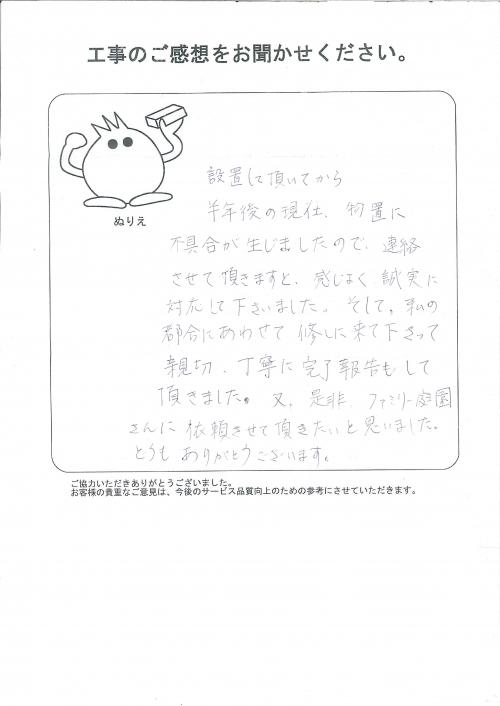 工事のご感想をお聞かせください。
ぬりえ
設置して頂いてから
半年後の現在、物置に
不具合が生じましたので、連絡
させて頂きますと、感じよく誠実に
対応して下さいました。そして、私の
都合にあわせて修しに来て下さって
親切、丁寧に完了報告もして
頂きました。又、是非、ファミリー庭園
さんに依頼させて頂きたいと思いました。
どうもありがとうございます。
ご協力いただきありがとうございました。
お客様の貴重なご意見は、今後のサービス品質向上のための参考にさせていただきます。